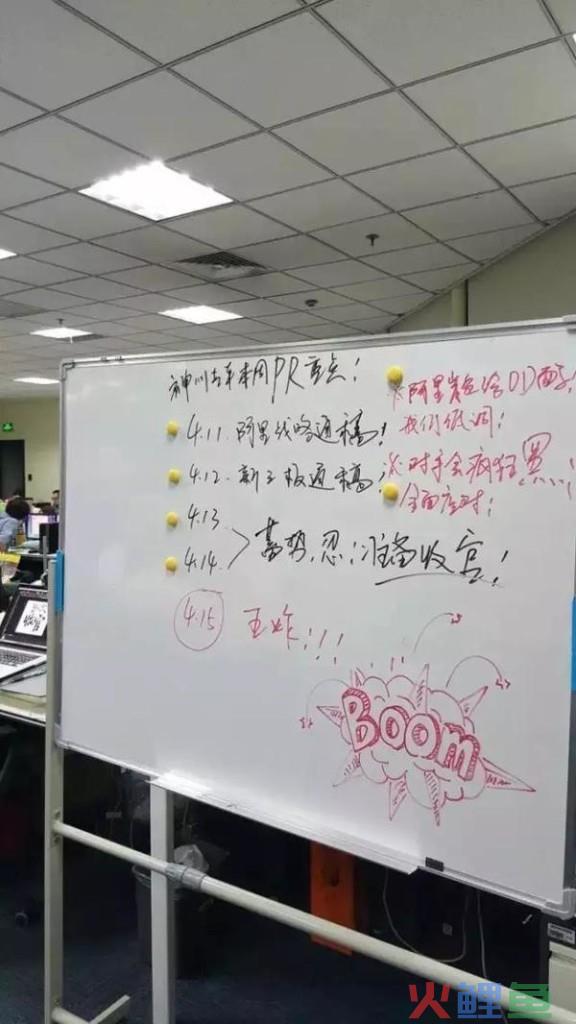 神州专车本周PR重点!
4.11. 阿里战略通稿!
4.12. 新三板通稿;
4.13
4.14. 蓄势,忍;准备收官!
4.15 王炸!!!
* 阿里
DD面子!
我们低调!
* 对手会疯狂黑
全面应对;
BOOM
火鲤鱼